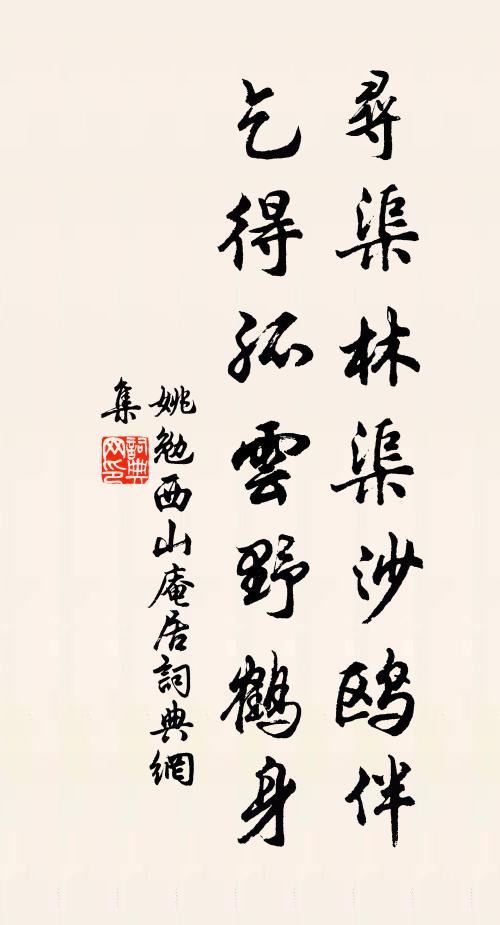 尋渠林渠沙鸥伴
乞得孤雲野鶴身
姚勉西山庵居詞典網
集
詞典
网印